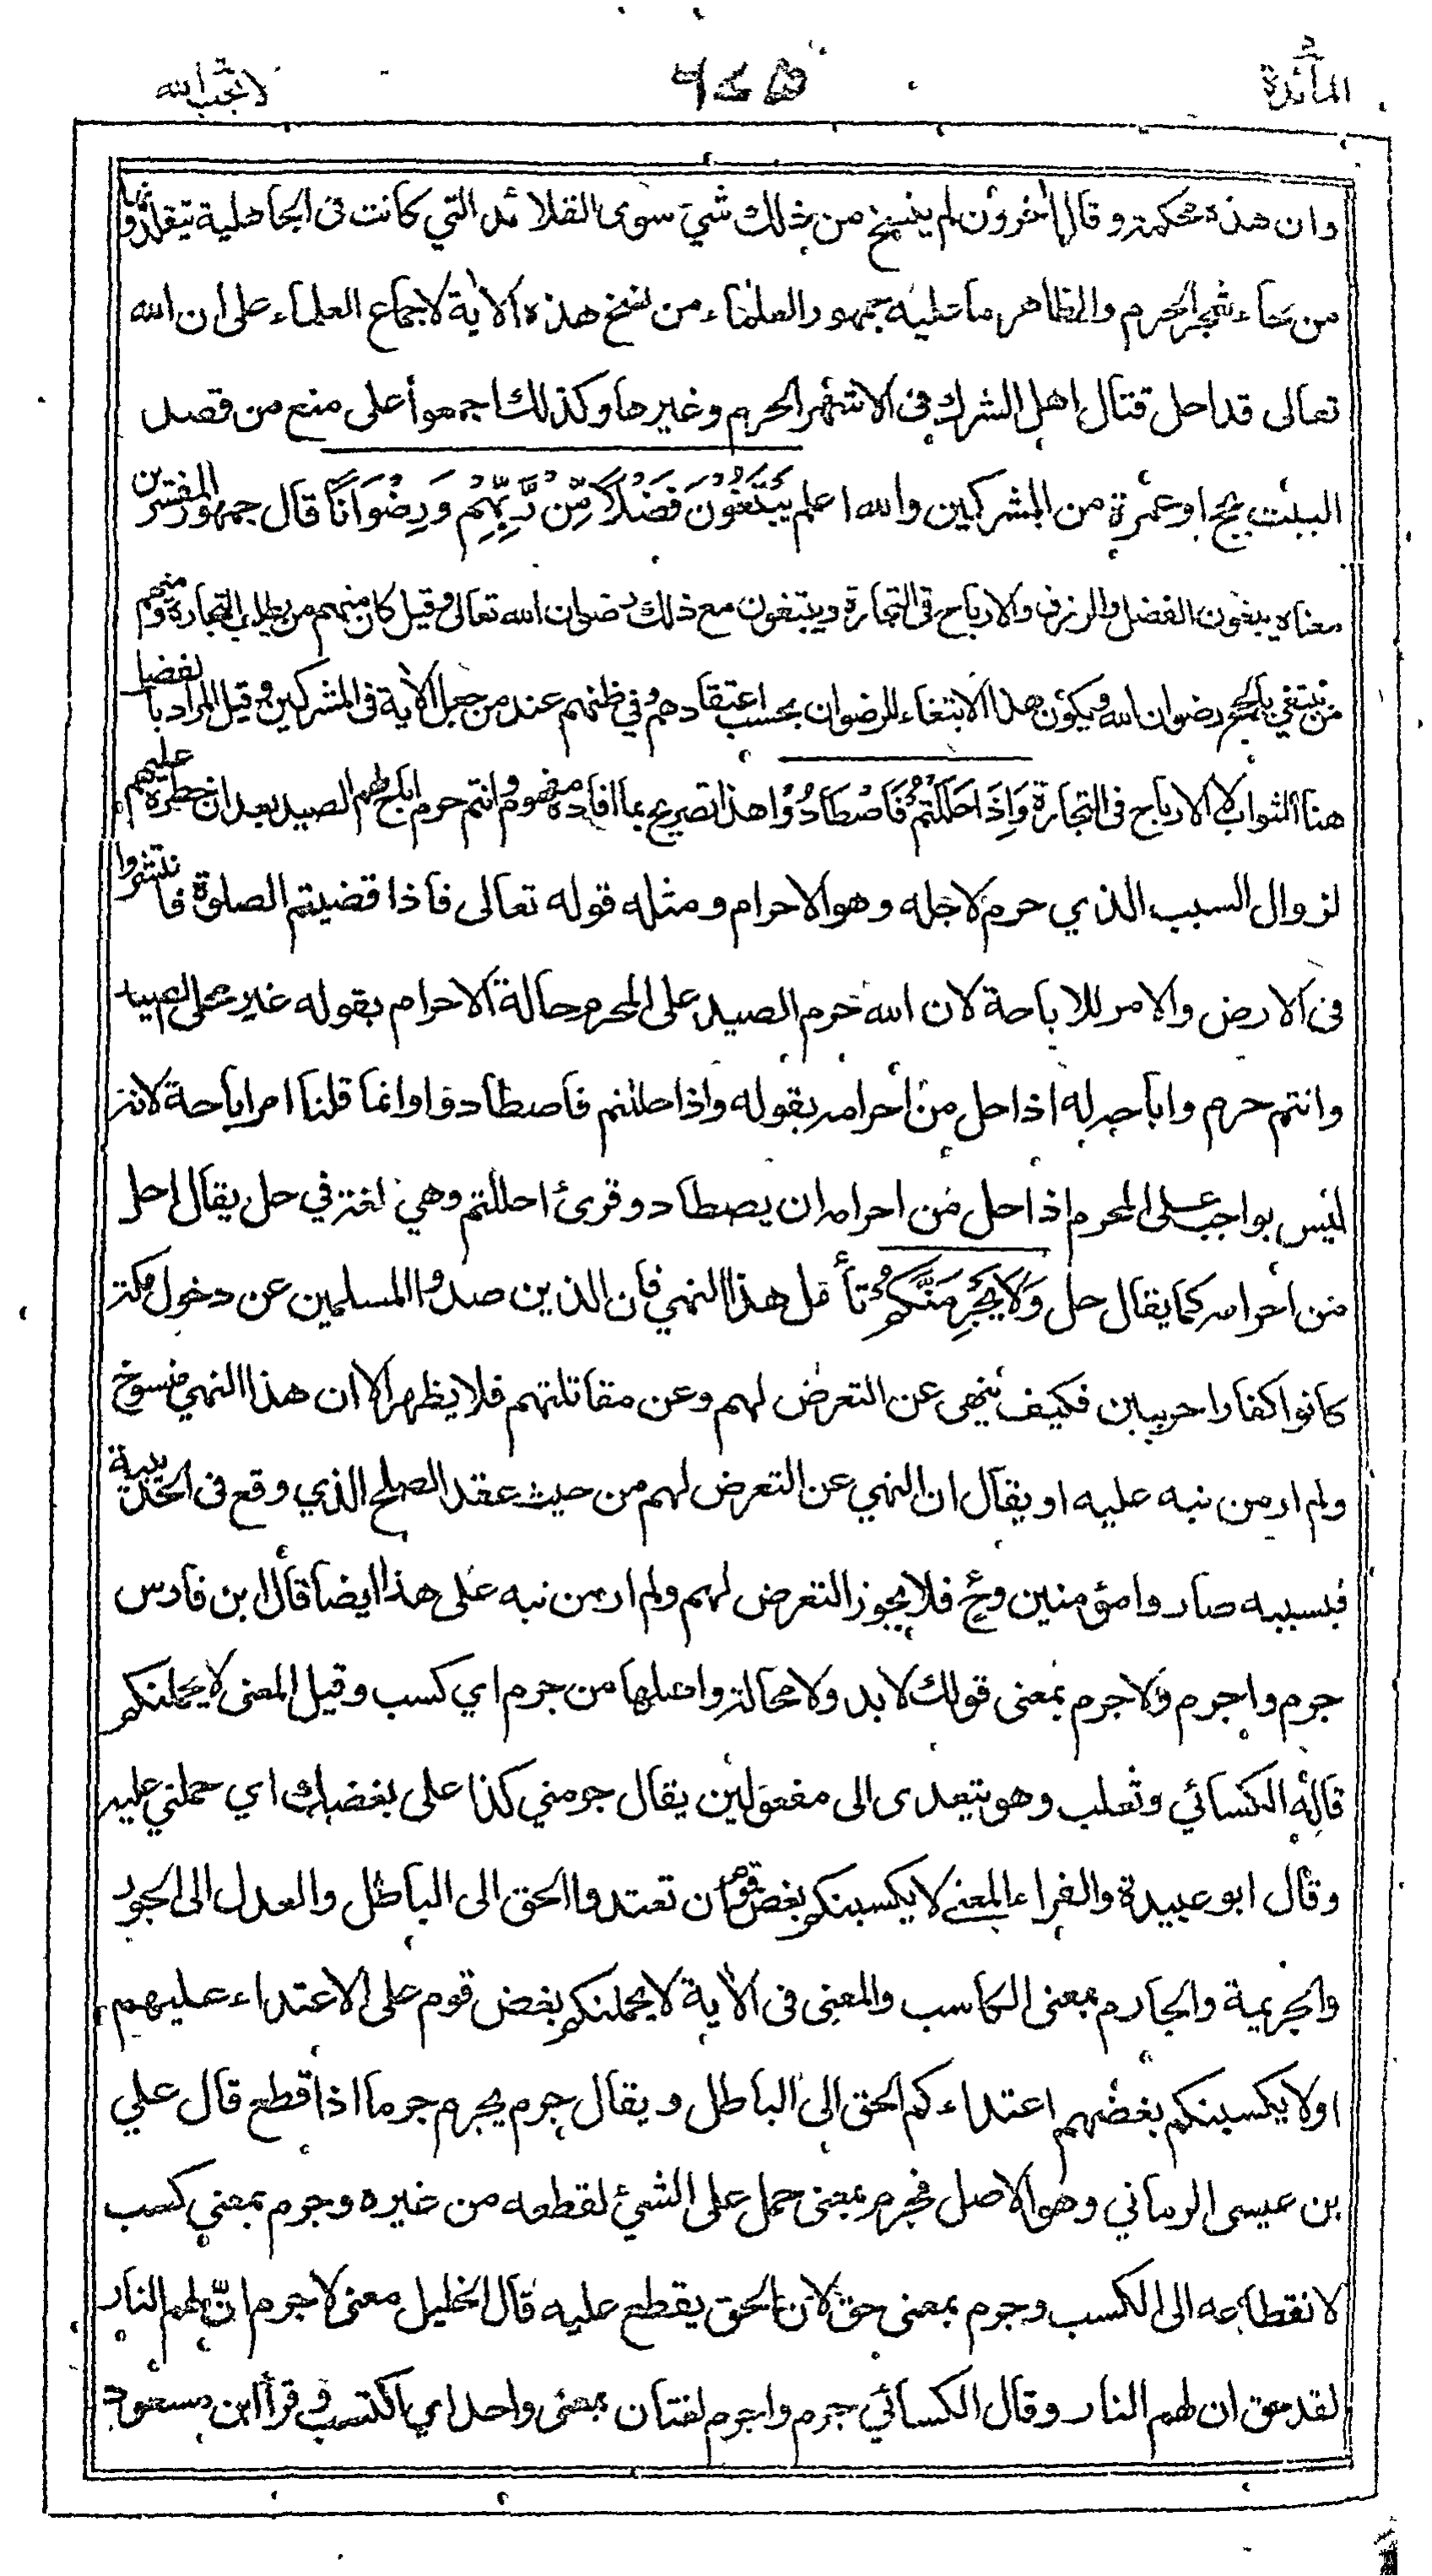 المائدة
لا يحب الله
وان هذه محكمة وقال آخرون لم ينسخ من ذلك شيء سوى القلائد التي كانت في الجاهلية يتقلدونها
من لحاء شجر الحرم والظاهر ما عليه جمهور العلماء من نسخ هذه الآية لاجماع العلماء على ان الله
تعالى قد احل قتال اهل الشرك في الاشهر الحرم وغيرها وكذلك اجمعوا على منع من قصد
البيت بحج او عمرة من المشركين والله اعلم يَبْتَغُونَ فَضْلًا مِّن رَّبِّهِمْ وَرِضْوَانًا قال جمهور المفسرين
معناه يبغون الفضل والرزق والارباح في التجارة ويبتغون مع ذلك رضوان الله تعالى وقيل كان منهم من يطلب التجارة ومنهم
من يبتغي بالحج رضوان الله ويكون هذا الابتغاء للرضوان بحسب اعتقادهم وفي ظنهم عند من جعل الآية في المشركين وقيل المراد بالفضل
هنا الثواب لا الارباح في التجارة وَاِذَا حَلَلْتُمْ فَاصْطَادُوْا هذا تصريح بما افاده مفهوم وانتم حرم اباح لهم الصيد بعد ان حظره عليهم
لزوال السبب الذي حرم لاجله وهو الاحرام ومثله قوله تعالى فاذا قضيتم الصلوة فانتشروا
في الارض والامر للاباحة لان الله حرم الصيد على المحرم حالة الاحرام بقوله غير محلى الصيد
وانتم حرم واباحه له اذا حل من احرامه بقوله واذا حللتم فاصطادوا وانما قلنا امر اباحة لانه
ليس بواجب على المحرم اذا حل من احرامه ان يصطاد وقرئ احللتم وهي لغة في حل يقال احل
من احرامه كما يقال حل وَلَا يَجْرِمَنَّكُمْ تأمل هذا النهي فان الذين صدوا المسلمين عن دخول مكة
كانوا كفارا حربيين فكيف ينهى عن التعرض لهم وعن مقاتلتهم فلا يظهر الا ان هذا النهي منسوخ
ولم ار من نبه عليه او يقال ان النهي عن التعرض لهم من حيث عقد الصلح الذي وقع في الحديبية
فبسببه صاروا مؤمنين وح فلا يجوز التعرض لهم ولم ار من نبه على هذا ايضا قال ابن فارس
جرم واجرم ولا جرم بمعنى قولك لا بد ولا محالة واصلها من جرم اي كسب وقيل المعنى لا يحملنكم
قاله الكسائي وثعلب وهو يتعدى الى مفعولين يقال جرمني كذا على بغضك اي حملني عليه
وقال ابو عبيدة والفراء المعنى لا يكسبنكم بغض قوم ان تعتدوا الحق الى الباطل والعدل الى الجور
والجريمة والجارم بمعنى الكاسب والمعنى في الآية لا يحملنكم بغض قوم على الاعتداء عليهم
اولا يكسبنكم بغضهم اعتداءكم الحق الى الباطل ويقال جرم يجرم جرما اذا قطع قال علي
بن عيسى الرماني وهو الاصل فجرم بمعنى حمل على الشيء لقطعه من غيره وجرم بمعنى كسب
لانقطاعه الى الكسب وجرم بمعنى حق لان الحق يقطع عليه قال الخليل معنى لا جرم انّ لهم النار
لقد حق ان لهم النار وقال الكسائي جرم واجرم لغتان بمعنى واحد اي اكتسب وقرأ ابن مسعود